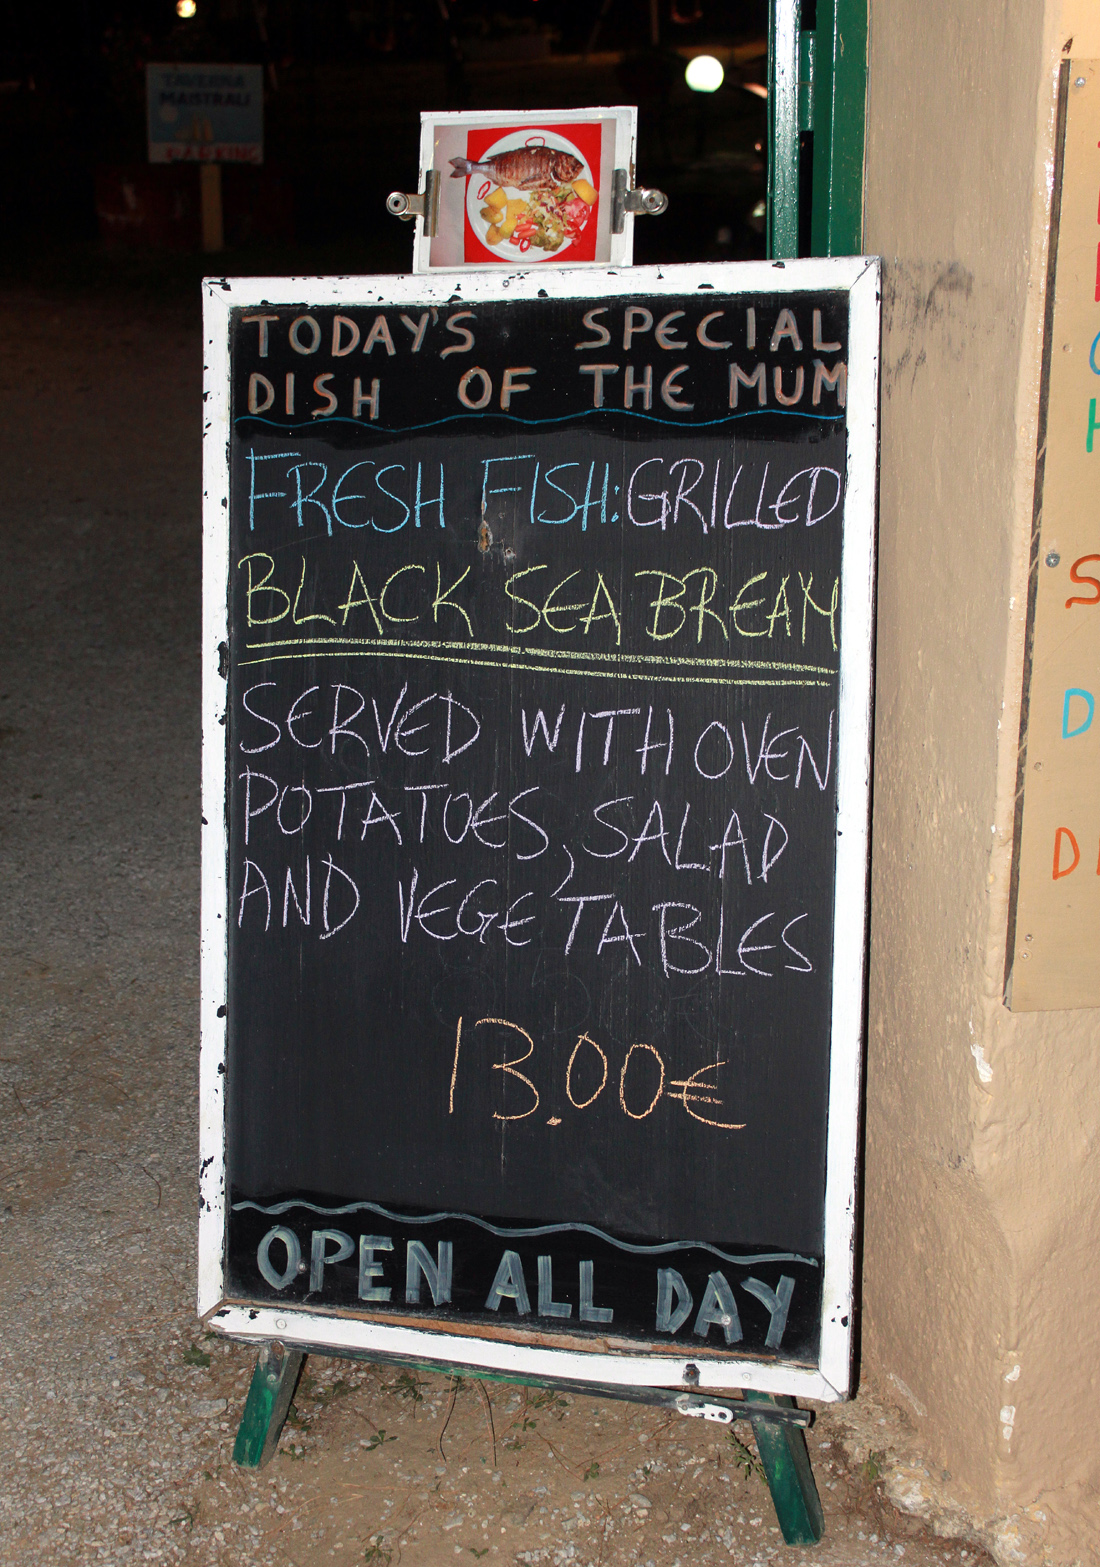 TAVERNA
MAISTRALI
PARKING
TODAY'S SPECIAL
DISH OF THE MUM
FRESH FISH: GRILLED
BLACK SEA BREAM
SERVED WITH OVEN
POTATOES, SALAD
AND VEGETABLES
13.00€
OPEN ALL DAY